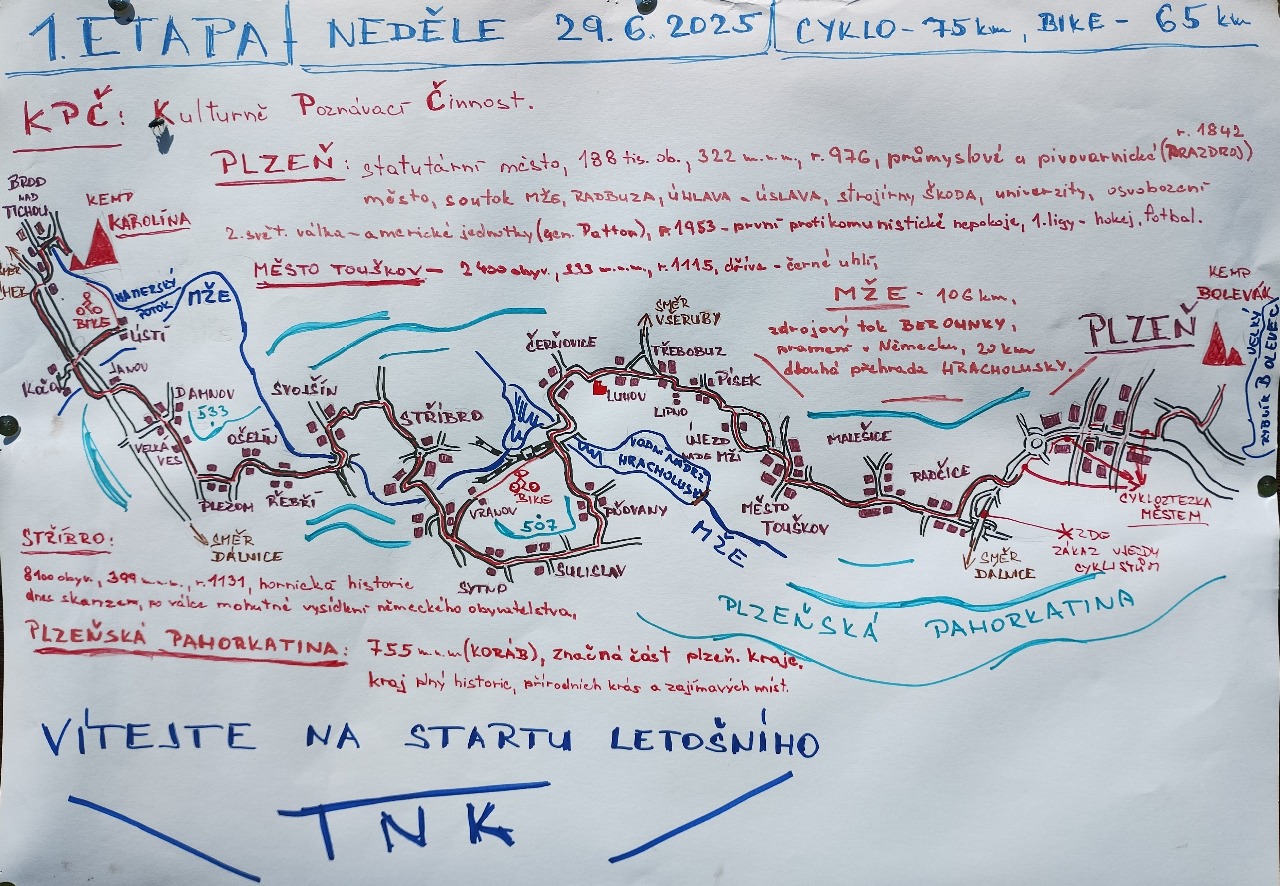 1. ETAPA
NEDĚLE 29.6.2025
CYKLO - 75 km, BIKE - 65 km
KPČ: Kulturně Poznávací Činnost.
r. 1842
PLZEŇ: statutární město, 188 tis. ob., 322 m.n.m., r. 976, průmyslové a pivovarnické (PRAZDROJ)
město, soutok MŽE, RADBUZA, ÚHLAVA - ÚSLAVA, strojírny ŠKODA, univerzity, osvobození
2. svět. válka - americké jednotky (gen. Patton), r 1953 - první protikomunistické nepokoje, 1. ligy - hokej, fotbal.
MĚSTO TOUŠKOV - 2 400 obyv., 333 m.n.m., r. 1115, dříve - černé uhlí,
MŽE - 106 km,
zdrojový tok BEROUNKY,
pramení v Německu, 20 km
dlouhá přehrada HRACHOLUSKY.
BROD
NAD
TICHOU
KEMP
KAROLÍNA
SMĚR
CHEB
HAMERSKÝ
POTOK
MŽE
BIKE
ÚSTÍ
JANOV
DAMNOV
533
VELKÁ
VES
OŠELÍN
PLEZOM
ŘEBŘÍ
SVOJŠÍN
STŘÍBRO
SMĚR
DÁLNICE
ČERŇOVICE
SMĚR
VŠERUBY
TŘEBOBUZ
LUHOV
LIPNO
PÍSEK
ÚJEZD
NADE MŽÍ
VODNÍ NÁDRŽ
HRACHOLUSKY
MŽE
VRANOV
BIKE
507
PŇOVANY
SYTNO
SULISLAV
MĚSTO
TOUŠKOV
MALEŠICE
RADČICE
SMĚR
DÁLNICE
PLZEŇ
KEMP
BOLEVÁK
VELKÝ
RYBNÍK BOLEVEC
CYKLOSTEZKA
MĚSTEM
ZDE
ZÁKAZ VJEZDU
CYKLISTŮM
PLZEŇSKÁ PAHORKATINA
STŘÍBRO:
8100 obyv., 399 m.n.m., r. 1131, hornická historie
dnes skanzen, po válce mohutné vysídlení německého obyvatelstva,
PLZEŇSKÁ PAHORKATINA: 755 m.n.m (KORÁB), značná část plzeň. kraje,
kraj plný historie, přírodních krás a zajímavých míst.
VÍTEJTE NA STARTU LETOŠNÍHO
TNK